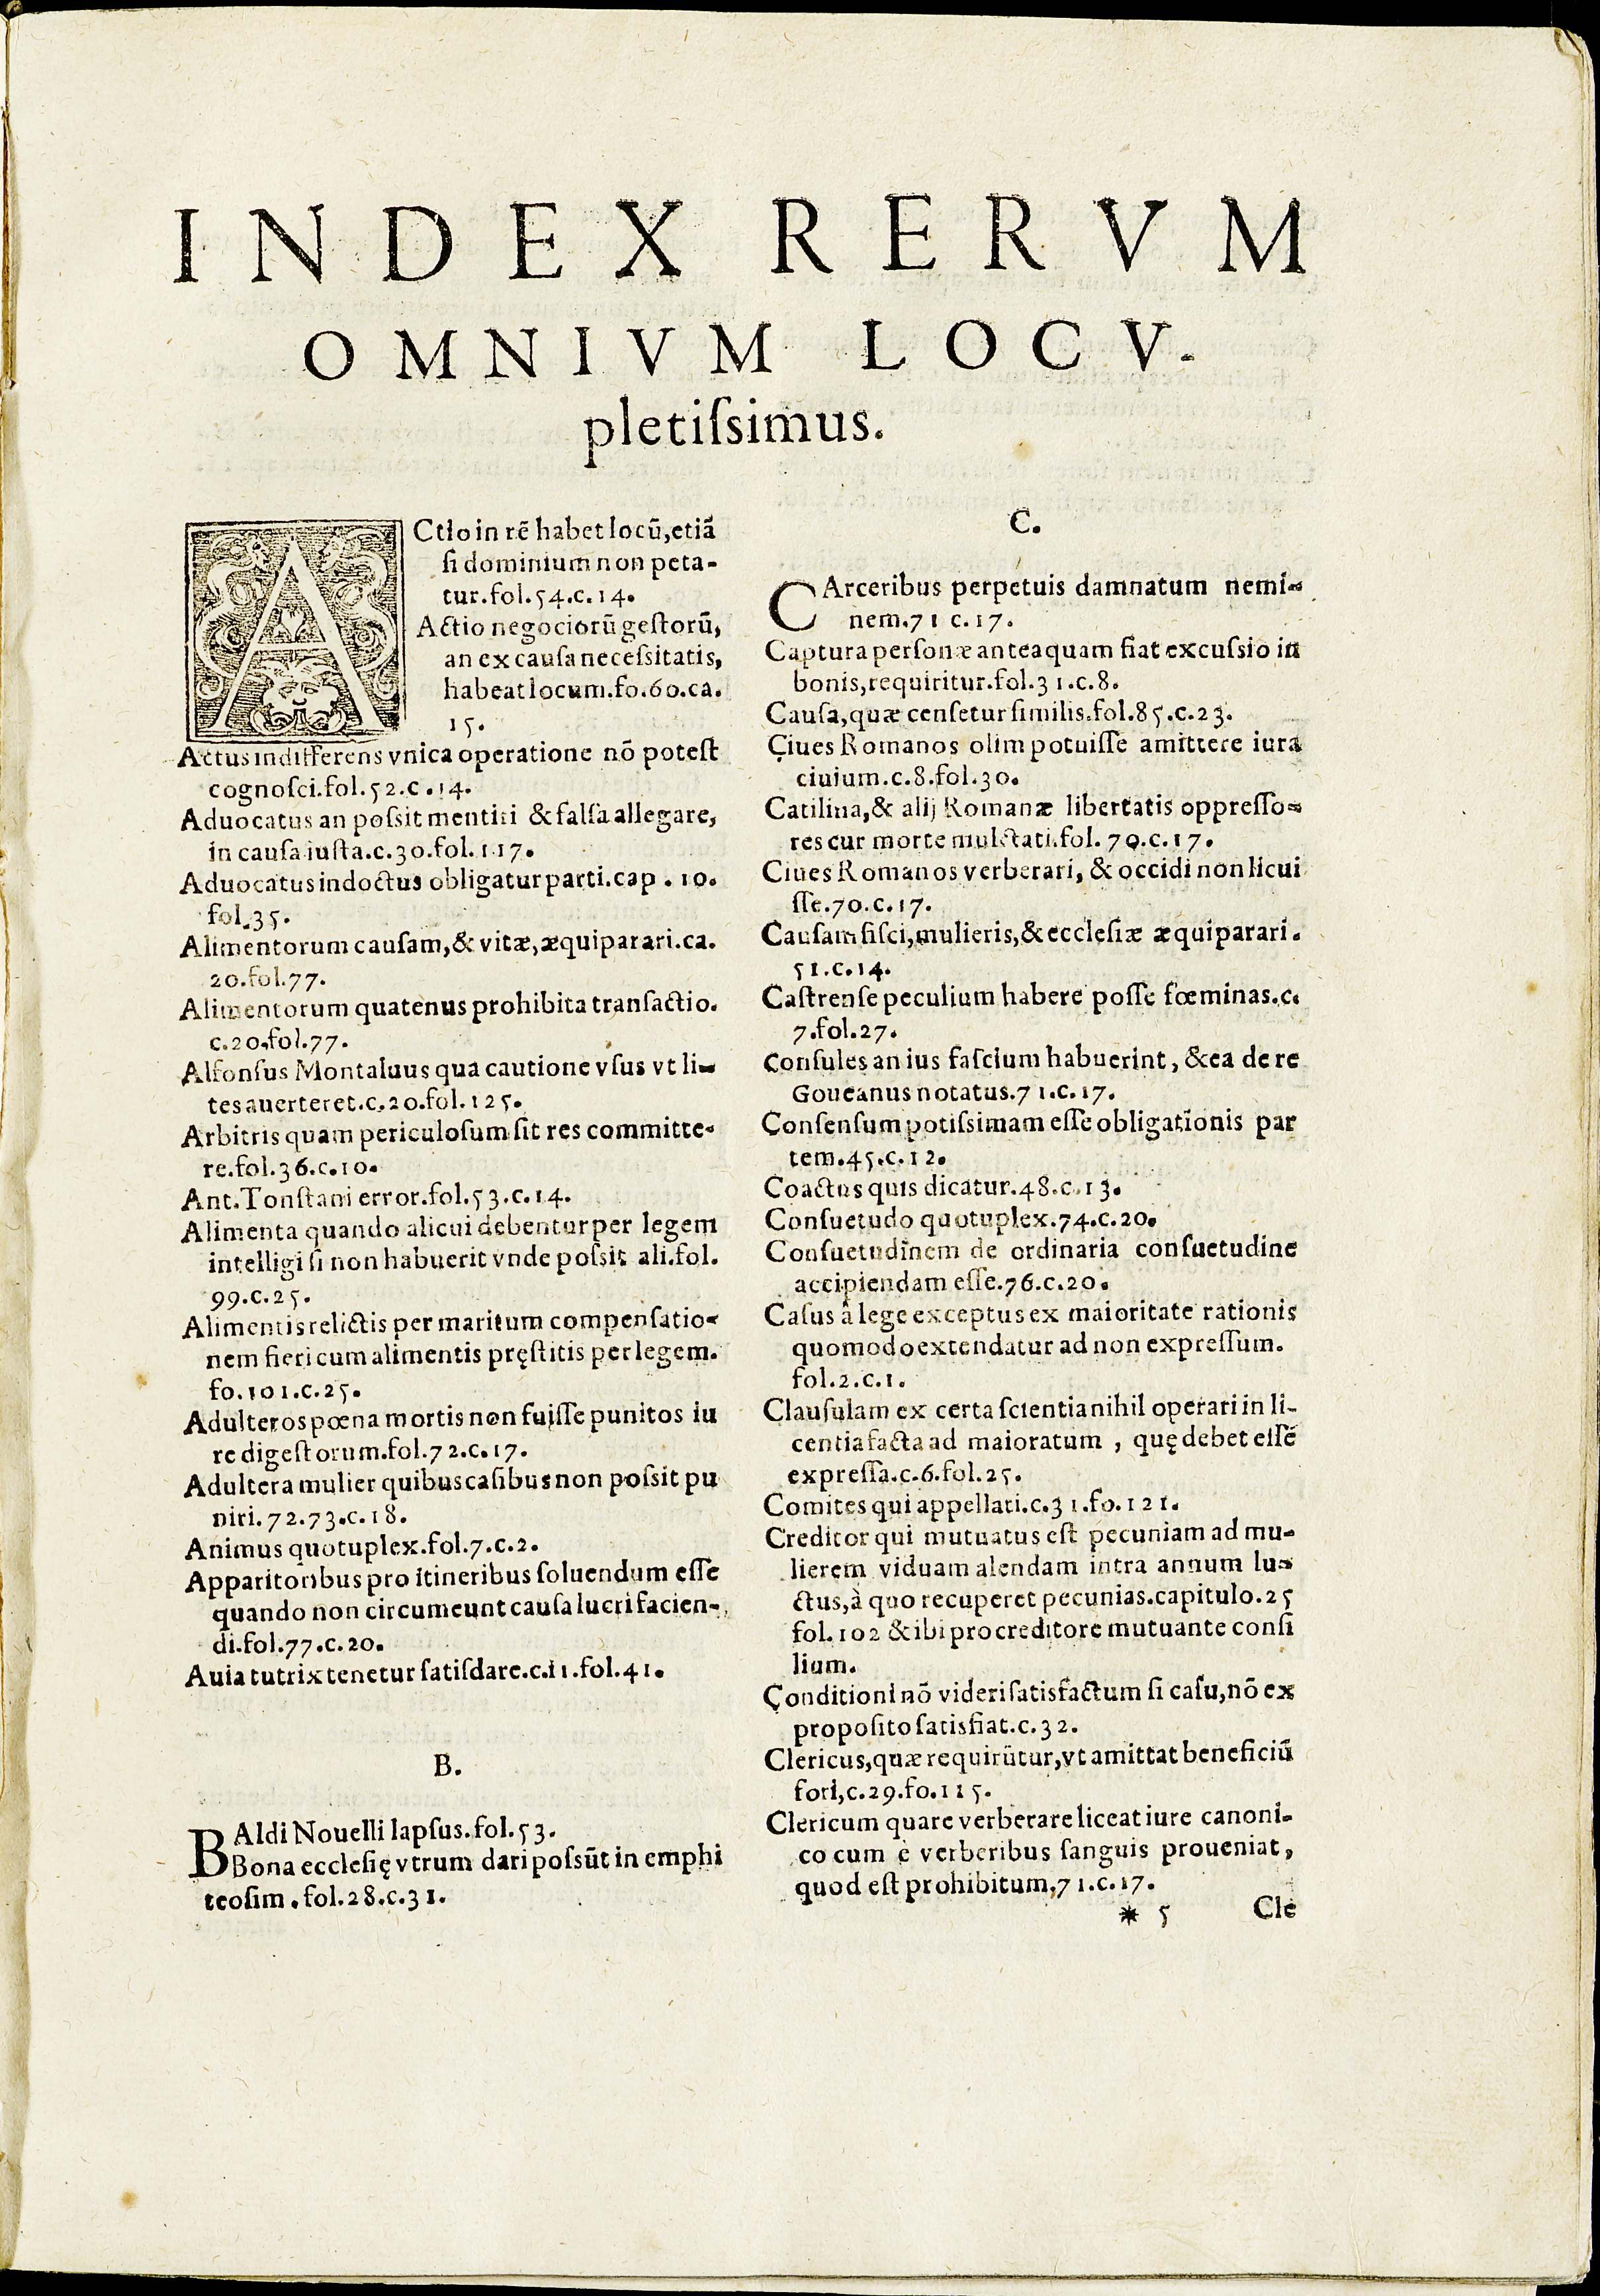 INDEX RERVM
OMNIVM LOCV-
pletiſsimus.
ACtio in rẽ habet locũ, etiã
ſi dominium non peta-
tur.fol.54.c.14.
Actio negociorũ geſtorũ,
an ex cauſa neceſsitatis,
habeat locum.fo.60.ca.
15.
Actus indifferens vnica operatione nõ poteſt
cognoſci.fol.52.c.14.
Aduocatus an poſsit mentiri & falſa allegare,
in cauſa iuſta.c.30.fol.117.
Aduocatus indoctus obligatur parti.cap.10.
fol.35.
Alimentorum cauſam, & vitæ, æquiparari.ca.
20.fol.77.
Alimentorum quatenus prohibita tranſactio.
c.20.fol.77.
Alfonſus Montaluus qua cautione vſus vt li-
tes auerteret.c.20.fol.125.
Arbitris quam periculoſum ſit res committe-
re.fol.36.c.10.
Ant. Tonſtani error.fol.53.c.14.
Alimenta quando alicui debentur per legem
intelligi ſi non habuerit vnde poſsit ali.fol.
99.c.25.
Alimentis relictis per maritum compenſatio-
nem fieri cum alimentis pręſtitis per legem.
fo.101.c.25.
Adulteros pœna mortis non fuiſſe punitos iu
re digeſtorum.fol.72.c.17.
Adultera mulier quibus caſibus non poſsit pu
niri.72.73.c.18.
Animus quotuplex.fol.7.c.2.
Apparitoribus pro itineribus ſoluendum eſſe
quando non circumeunt cauſa lucri facien-
di.fol.77.c.20.
Auia tutrix tenetur ſatiſdare.c.11.fol.41.
B.
BAldi Nouelli lapſus.fol.53.
Bona eccleſię vtrum dari poſsũt in emphi
teoſim.fol.28.c.31.
C.
CArceribus perpetuis damnatum nemi-
nem.71 c.17.
Captura perſonæ antea quam fiat excuſsio in
bonis, requiritur.fol.31.c.8.
Cauſa, quæ cenſetur ſimilis.fol.85.c.23.
Ciues Romanos olim potuiſſe amittere iura
ciuium.c.8.fol.30.
Catilina, & alij Romanæ libertatis oppreſſo-
res cur morte mulctati.fol.70.c.17.
Ciues Romanos verberari, & occidi non licui
ſſe.70.c.17.
Cauſam fiſci, mulieris, & eccleſiæ æquiparari.
51.c.14.
Caſtrenſe peculium habere poſſe fœminas.c.
7.fol.27.
Conſules an ius faſcium habuerint, & ea de re
Goueanus notatus.71.c.17.
Conſenſum potiſsimam eſſe obligationis par
tem.45.c.12.
Coactus quis dicatur.48.c.13.
Conſuetudo quotuplex.74.c.20.
Conſuetudinem de ordinaria conſuetudine
accipiendam eſſe.76.c.20.
Caſus à lege exceptus ex maioritate rationis
quomodo extendatur ad non expreſſum.
fol.2.c.1.
Clauſulam ex certa ſcientia nihil operari in li-
centia facta ad maioratum , quę debet eſſe
expreſſa.c.6.fol.25.
Comites qui appellati.c.31.fo.121.
Creditor qui mutuatus eſt pecuniam ad mu-
lierem viduam alendam intra annum lu-
ctus, à quo recuperet pecunias.capitulo.25
fol.102 & ibi pro creditore mutuante conſi
lium.
Conditioni nõ videri ſatisfactum ſi caſu, nõ ex
propoſito ſatisfiat.c.32.
Clericus, quæ requirũtur, vt amittat beneficiũ
fori, c.29.fo.115.
Clericum quare verberare liceat iure canoni-
co cum è verberibus ſanguis proueniat,
quod eſt prohibitum, 71.c.17.
* 5 Cle